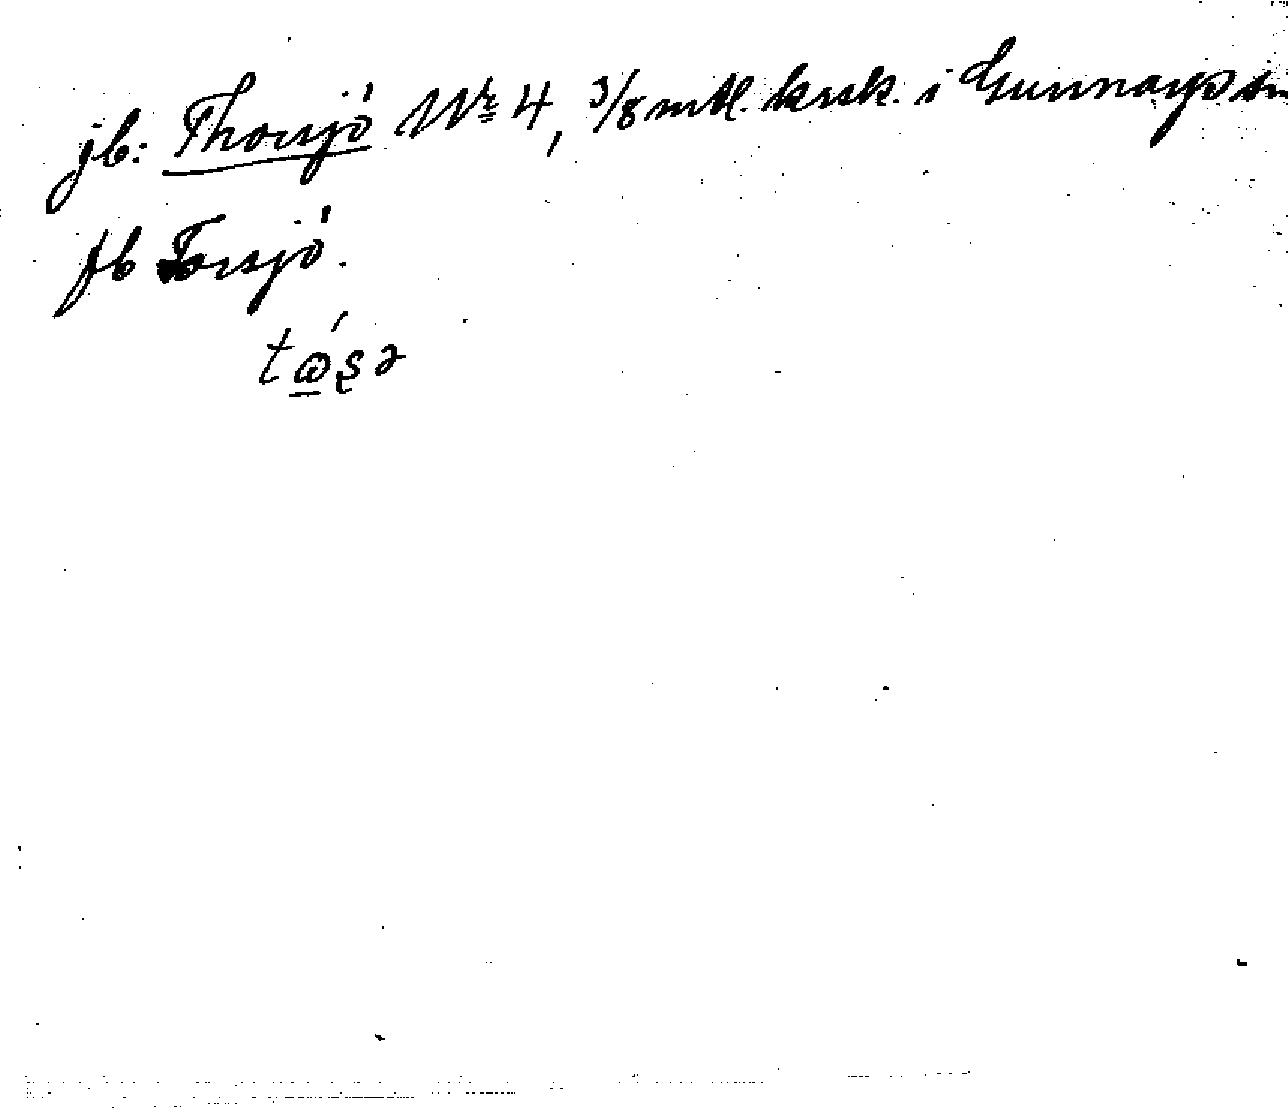 jb: Thorsjö Nr 4, 3/8 mtl. krsk. i Gunnarps sn
fb Torsjö.